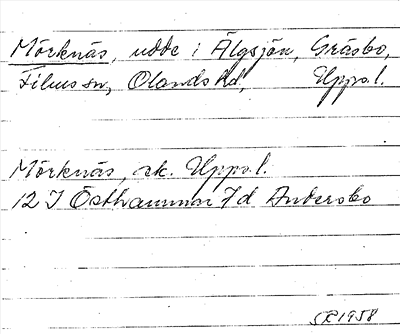 Mörknäs, udde i Älgsjön, Gräsbo,
Films sn, Olands hd, Upps. l.
Mörknäs, ek. Upps. l.
12 I Östhammar 7d Andersbo
SR 1958